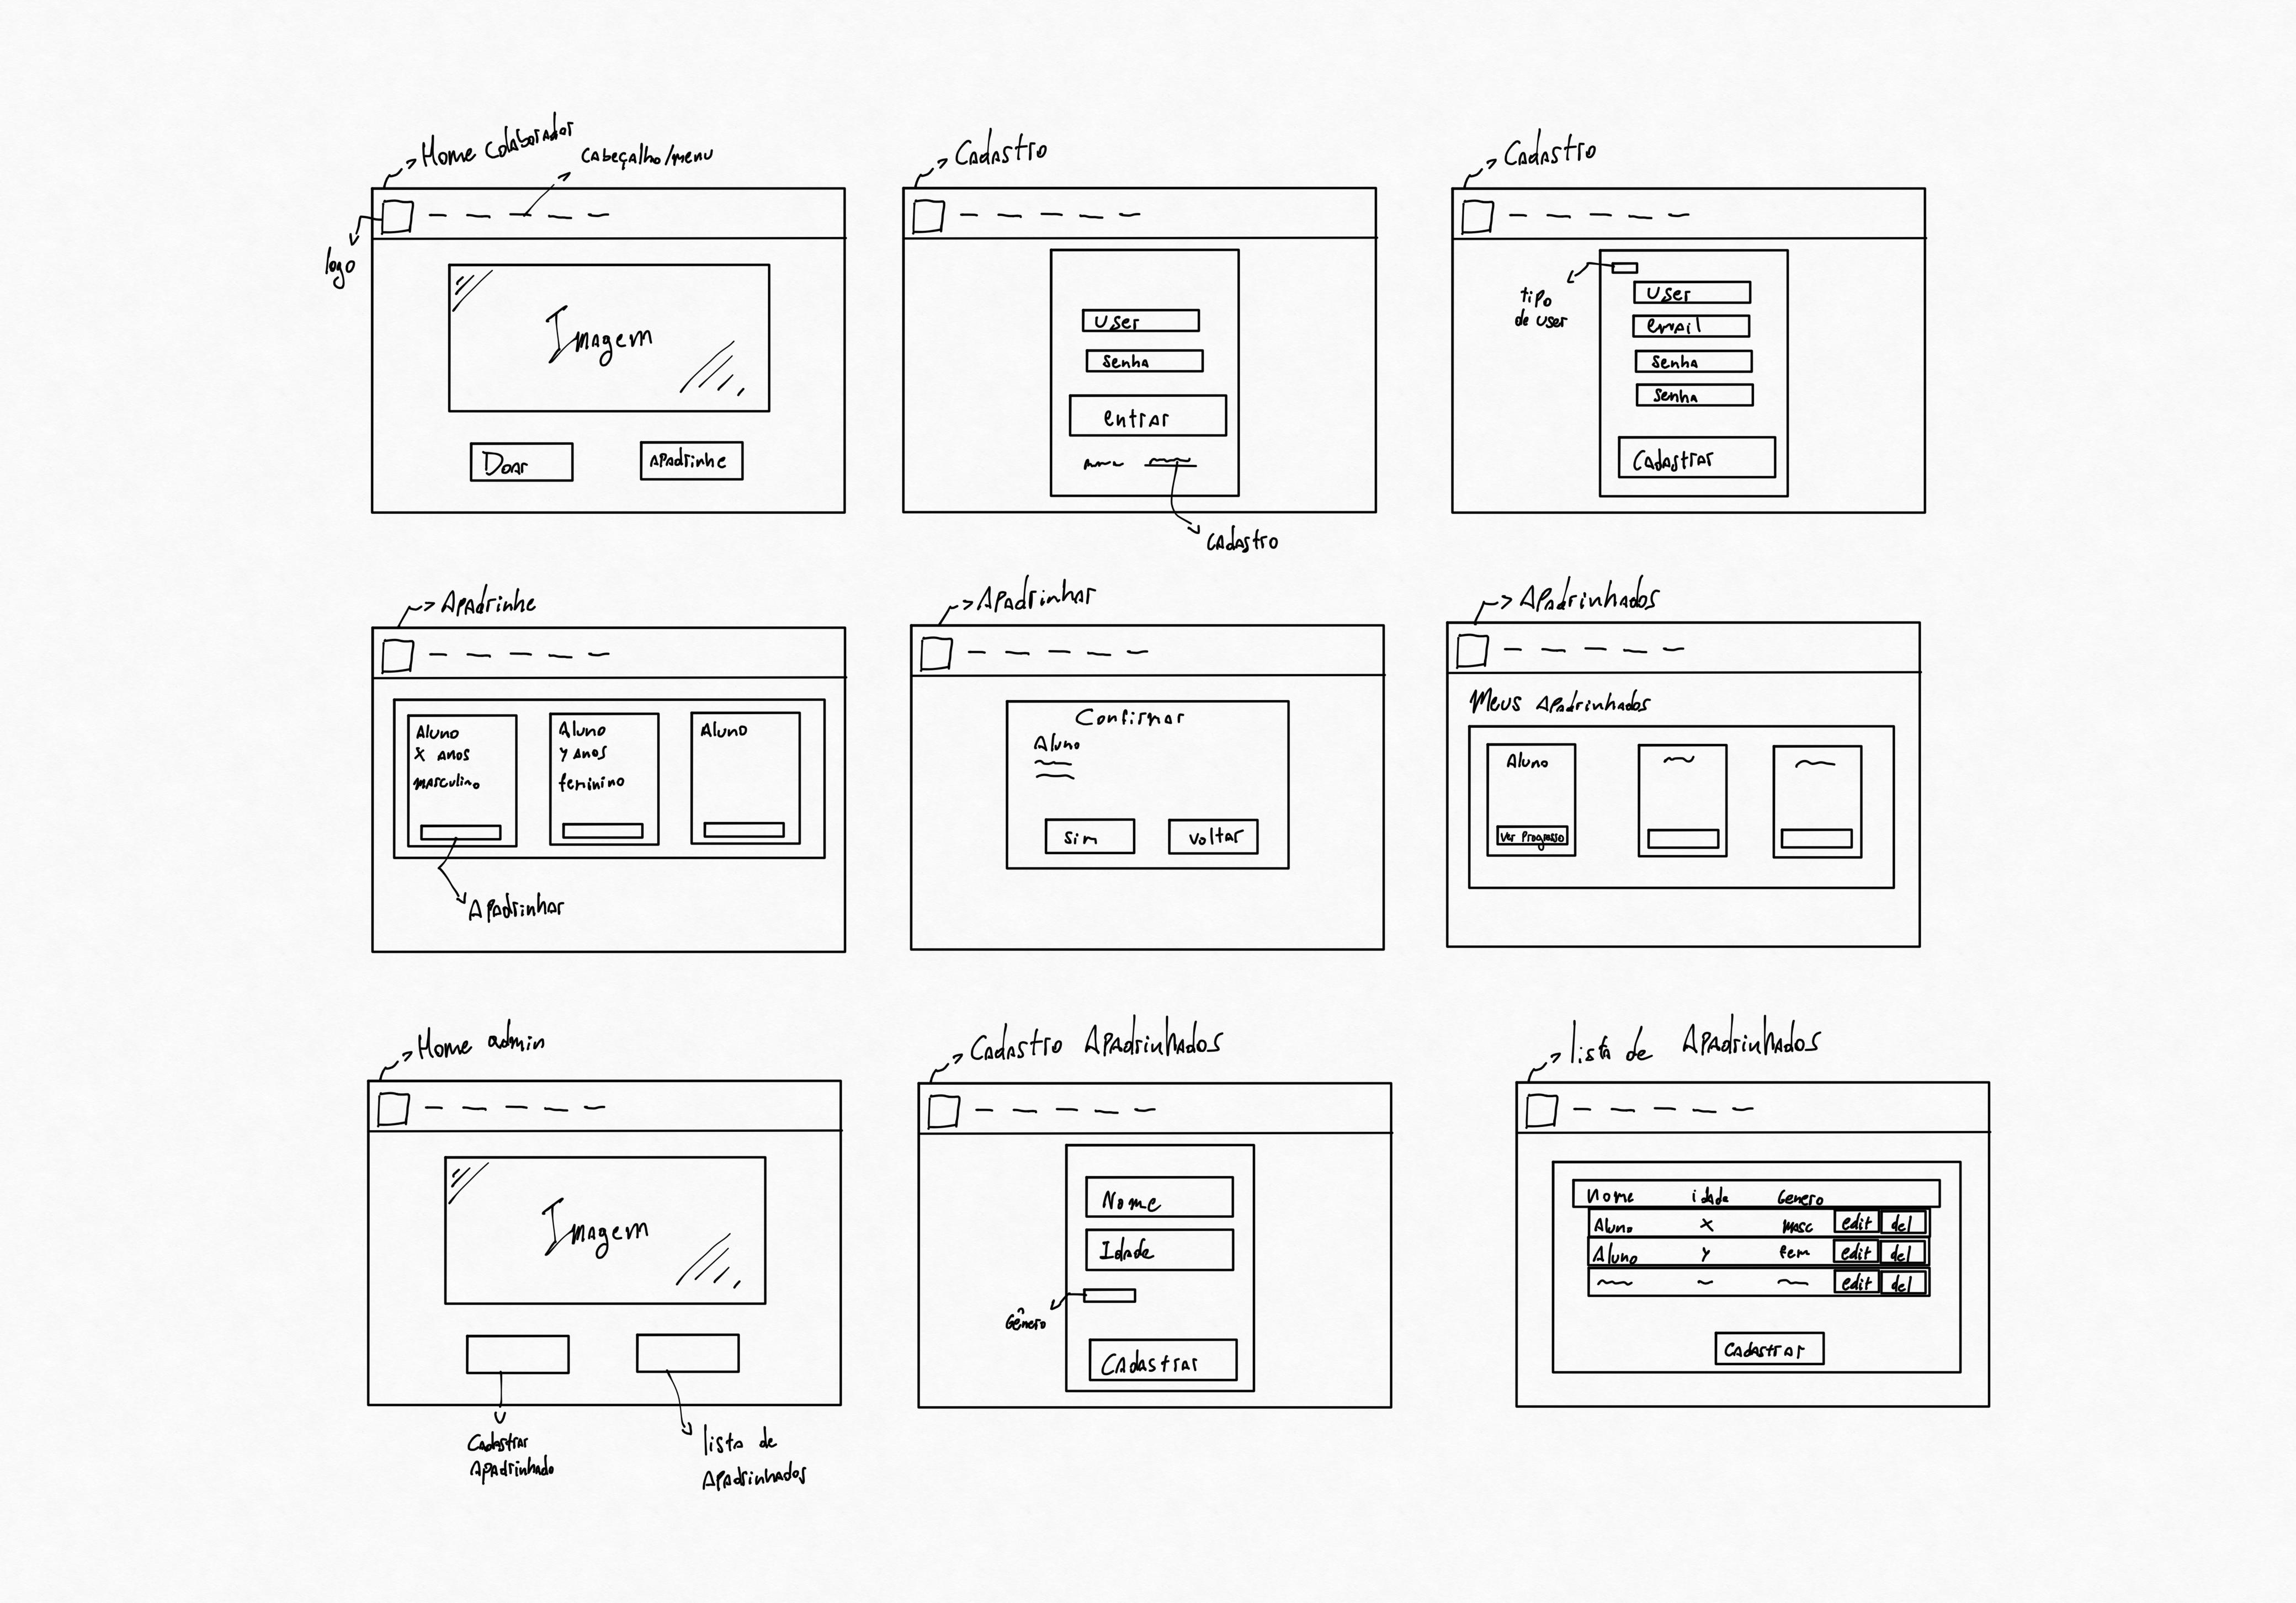 Home colaborador
Cabeçalho/menu
logo
Imagem
Doar
Apadrinhe
Cadastro
User
Senha
entrar
Cadastro
Cadastro
tipo
de user
User
email
Senha
Senha
Cadastrar
Apadrinhe
Aluno
X anos
masculino
Aluno
y anos
feminino
Aluno
Apadrinhar
Apadrinhar
Confirmar
Aluno
Sim
Voltar
Apadrinhados
Meus Apadrinhados
Aluno
Ver Progresso
Home admin
Imagem
Cadastrar
Apadrinhado
lista de
Apadrinhados
Cadastro Apadrinhados
Nome
Idade
Gênero
Cadastrar
lista de Apadrinhados
Nome idade Genero
Aluno X masc edit del
Aluno y fem edit del
edit del
Cadastrar